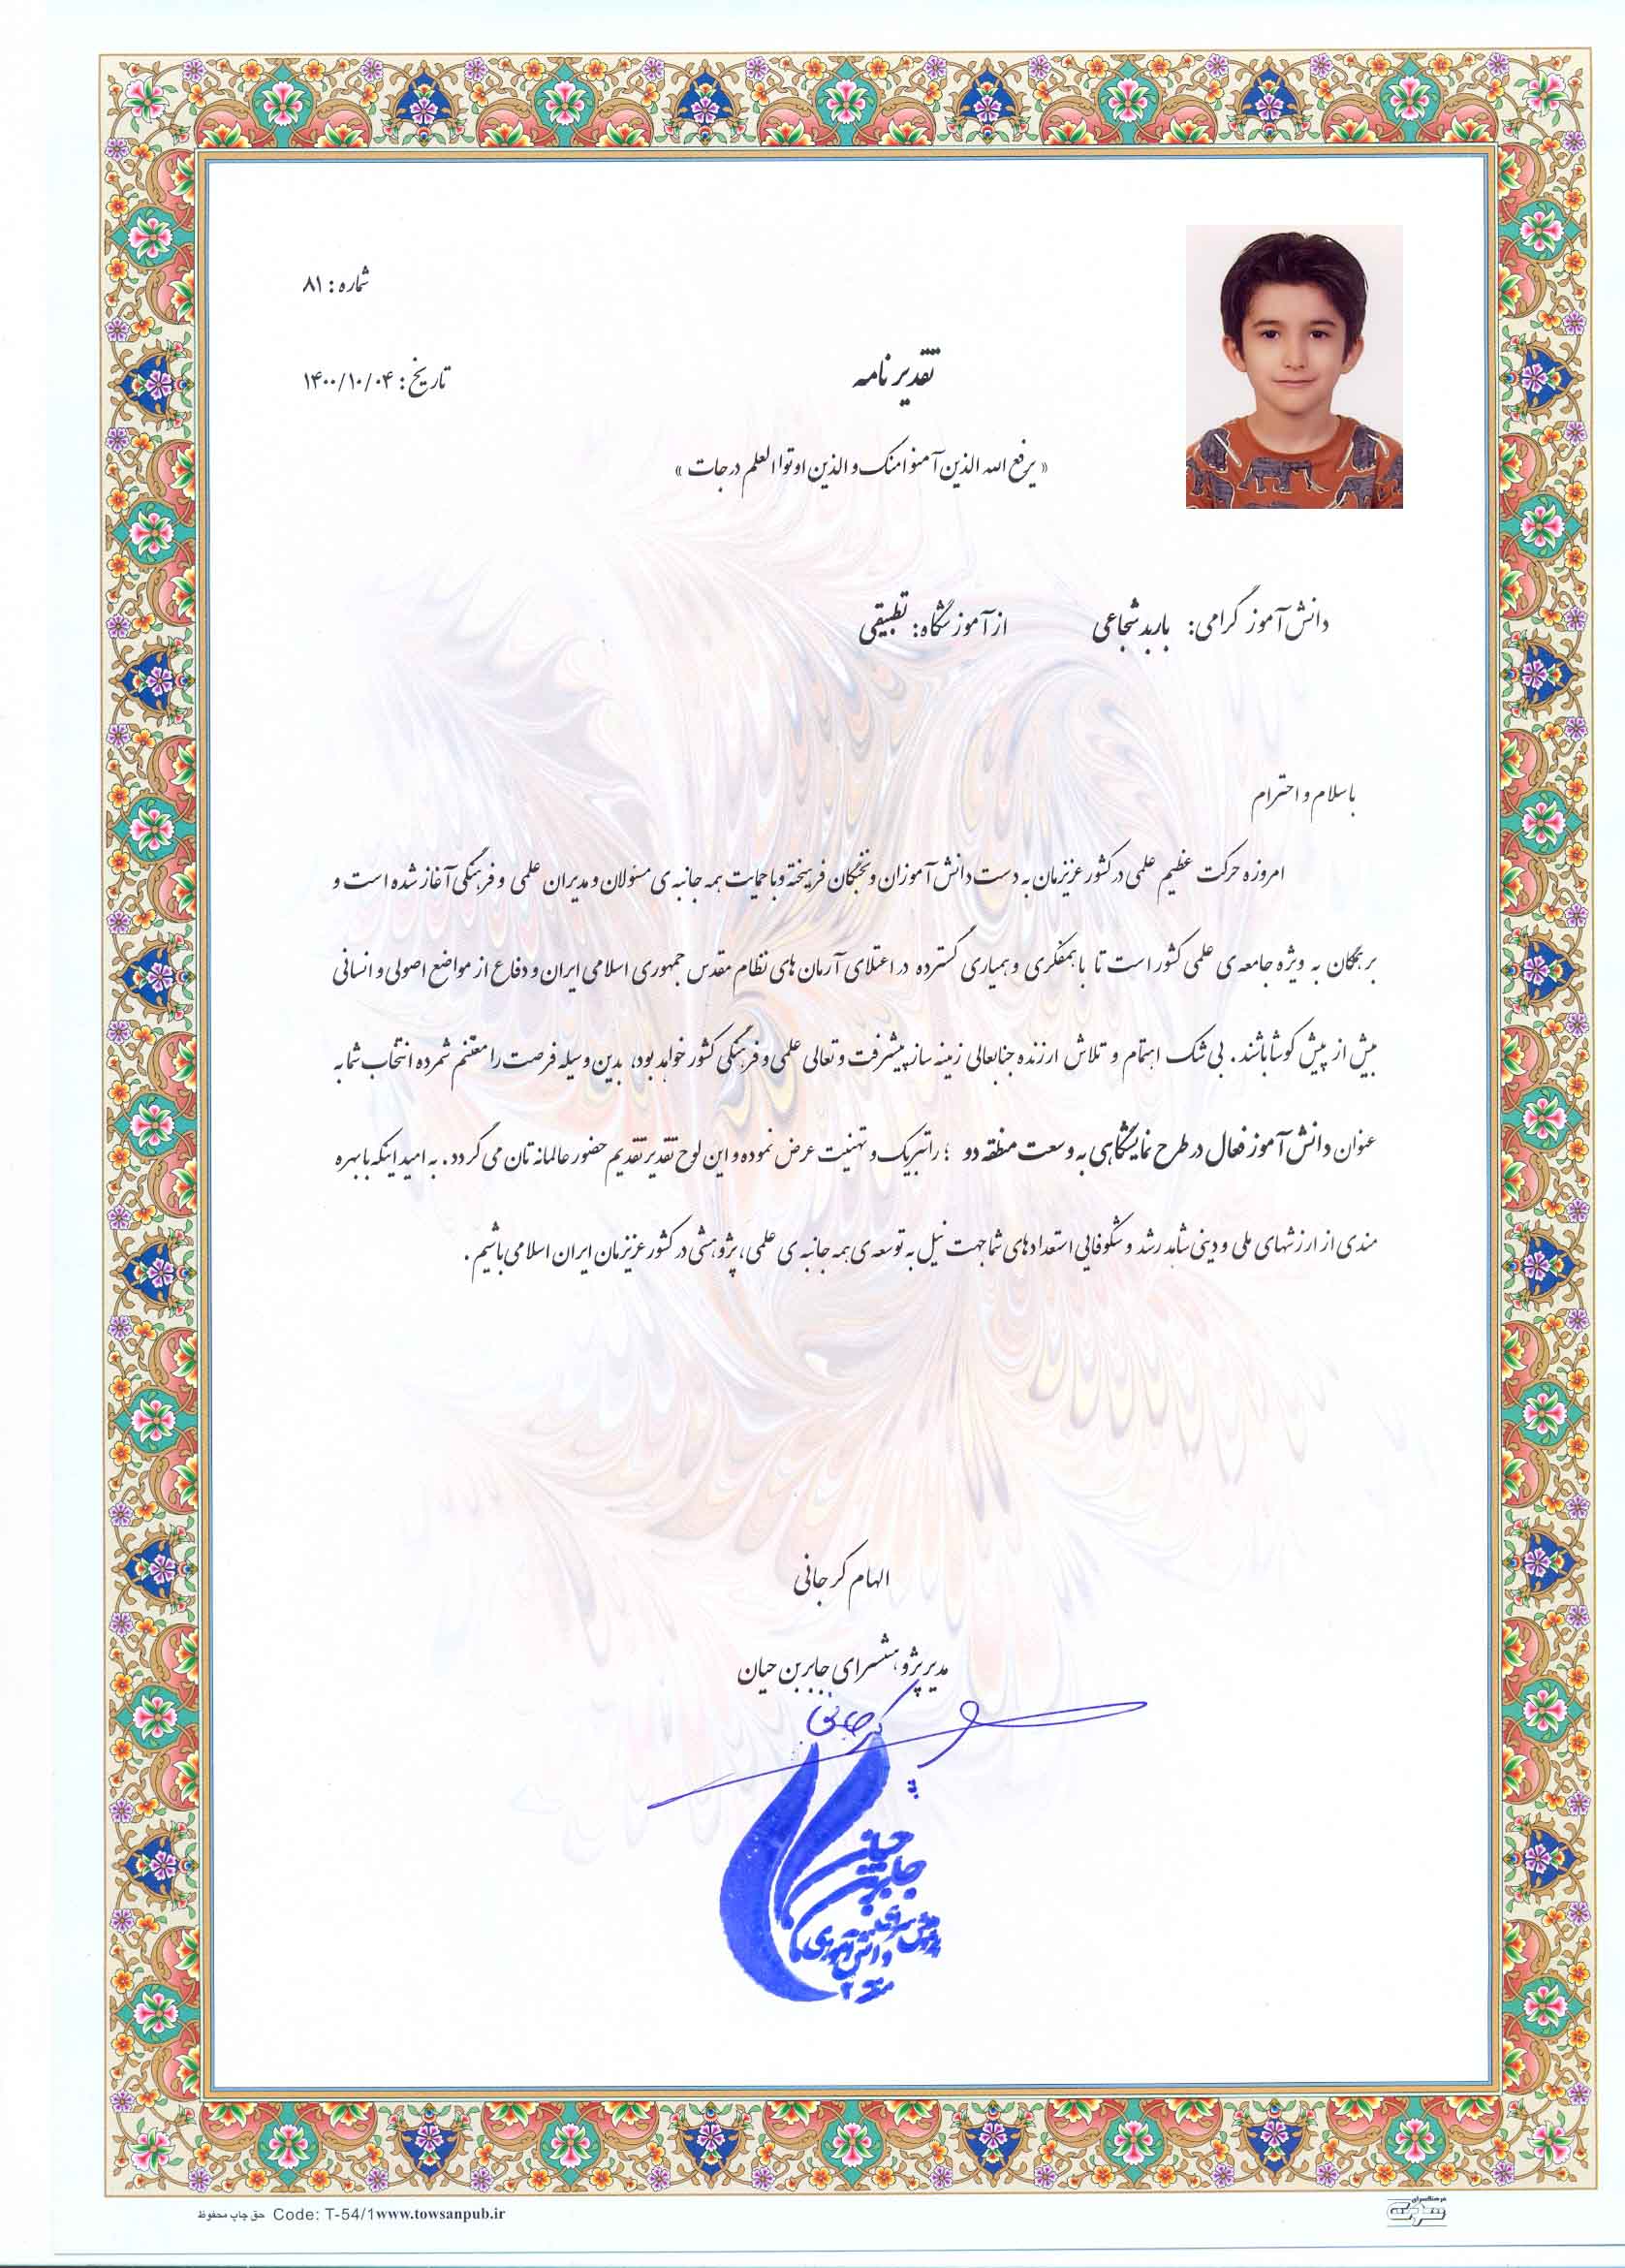 شماره : ۸۱
تقدیرنامه
تاریخ : ۱۴۰۰/۱۰/۰۴
« یرفع الله الذین آمنوا منک و الذین اوتوا العلم درجات »
دانش آموز گرامی: باربد شجاعی از آموزشگاه: تطبیقی
با سلام و احترام
امروزه حرکت عظیم علمی در کشور عزیزمان به دست دانش آموزان و نخبگان فرهیخته و با حمایت همه جانبه ی مسئولان و مدیران علمی و فرهنگی آغاز شده است و
بر همگان به ویژه جامعه ی علمی کشور است تا با همفکری و همیاری گسترده در اعتلای آرمان های نظام مقدس جمهوری اسلامی ایران و دفاع از مواضع اصولی و انسانی
بیش از پیش کوشا باشند . بی شک اهتمام و تلاش ارزنده جنابعالی زمینه ساز پیشرفت و تعالی علمی و فرهنگی کشور خواهد بود، بدین وسیله فرصت را مغتنم شمرده انتخاب شما به
عنوان دانش آموز فعال در طرح نمایشگاهی به وسعت منطقه دو ؛ را تبریک و تهنیت عرض نموده و این لوح تقدیر تقدیم حضور عالمانه تان می گردد . به امید اینکه با بهره
مندی از ارزشهای ملی و دینی شاهد رشد و شکوفایی استعدادهای شما جهت نیل به توسعه ی همه جانبه ی علمی، پژوهشی در کشور عزیزمان ایران اسلامی باشیم .
الهام کرجانی
مدیر پژوهشسرای جابربن حیان
کرجانی
جابربن حیان
پژوهش سرای
دانش آموزی
منطقه ۲
حق چاپ محفوظ Code: T-54/1 www.towsanpub.ir